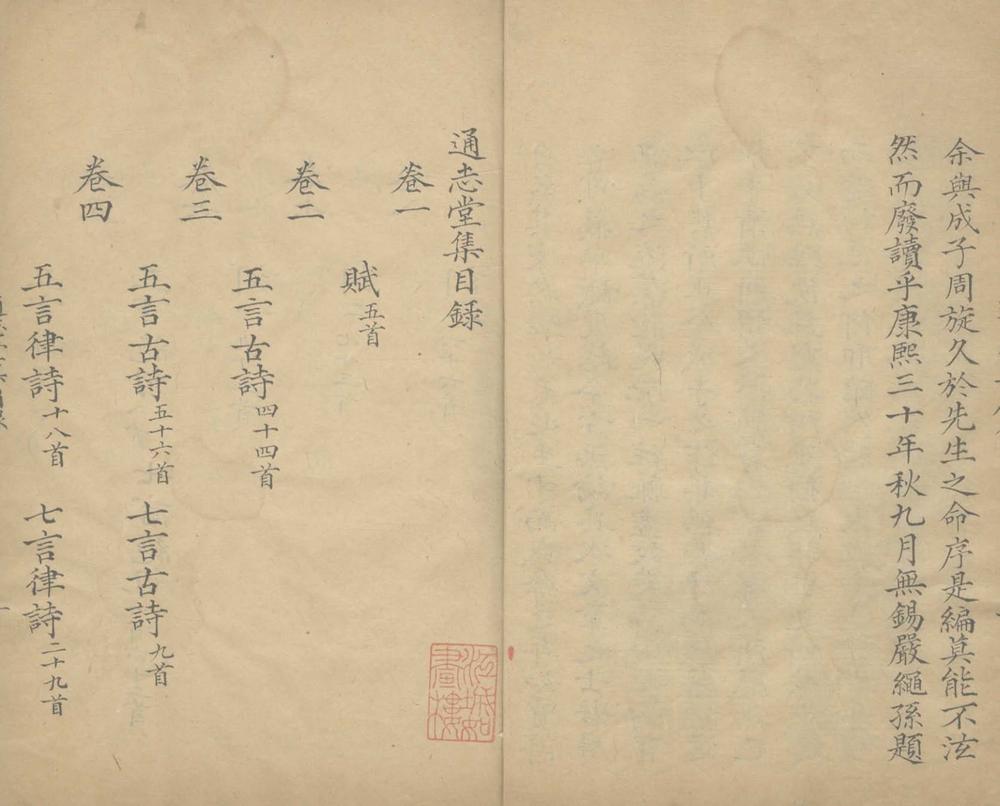 余與成子周旋久於先生之命序是編莫能不泫
然而廢讀乎康熙三十年秋九月無錫嚴繩孫題
通志堂集目録
卷一
賦五首
卷二
五言古詩四十四首
卷三
五言古詩五十六首 七言古詩九首
卷四
五言律詩十八首 七言律詩二十九首